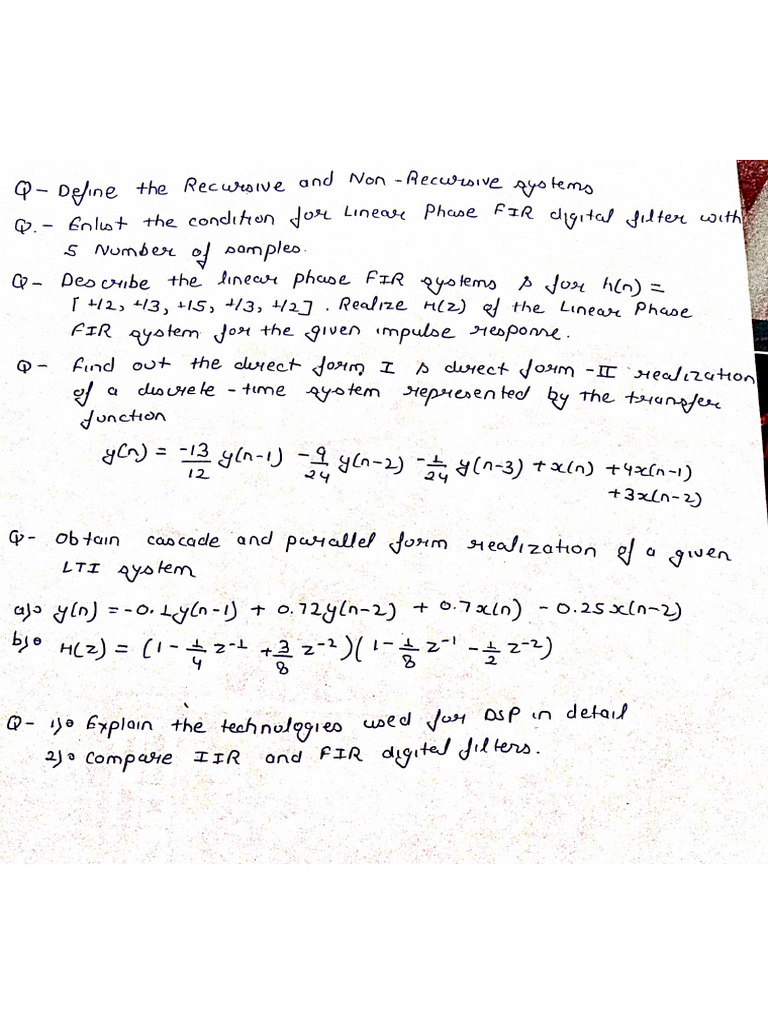 Q- Define the Recursive and Non-Recursive systems
Q.- Enlist the condition for Linear Phase FIR digital filter with
5 Number of samples.
Q- Describe the linear phase FIR systems & for h(n) =
[ +12, +13, +15, +13, +12] . Realize H(z) of the Linear Phase
FIR system for the given impulse response.
Q- Find out the direct form I & direct form -II realization
of a discrete -time system represented by the transfer
function
y(n) = -13/12 y(n-1) -9/24 y(n-2) -1/24 y(n-3) + x(n) + 4x(n-1)
+3x(n-2)
Q- Obtain cascade and parallel form realization of a given
LTI system
a)o y(n) = -0.1y(n-1) + 0.72y(n-2) + 0.7x(n) - 0.25x(n-2)
b)o H(z) = (1 - 1/4 z-1 + 3/8 z-2)(1 - 1/8 z-1 - 1/2 z-2)
Q- 1)o Explain the technologies used for DSP in detail
2)o Compare IIR and FIR digital filters.